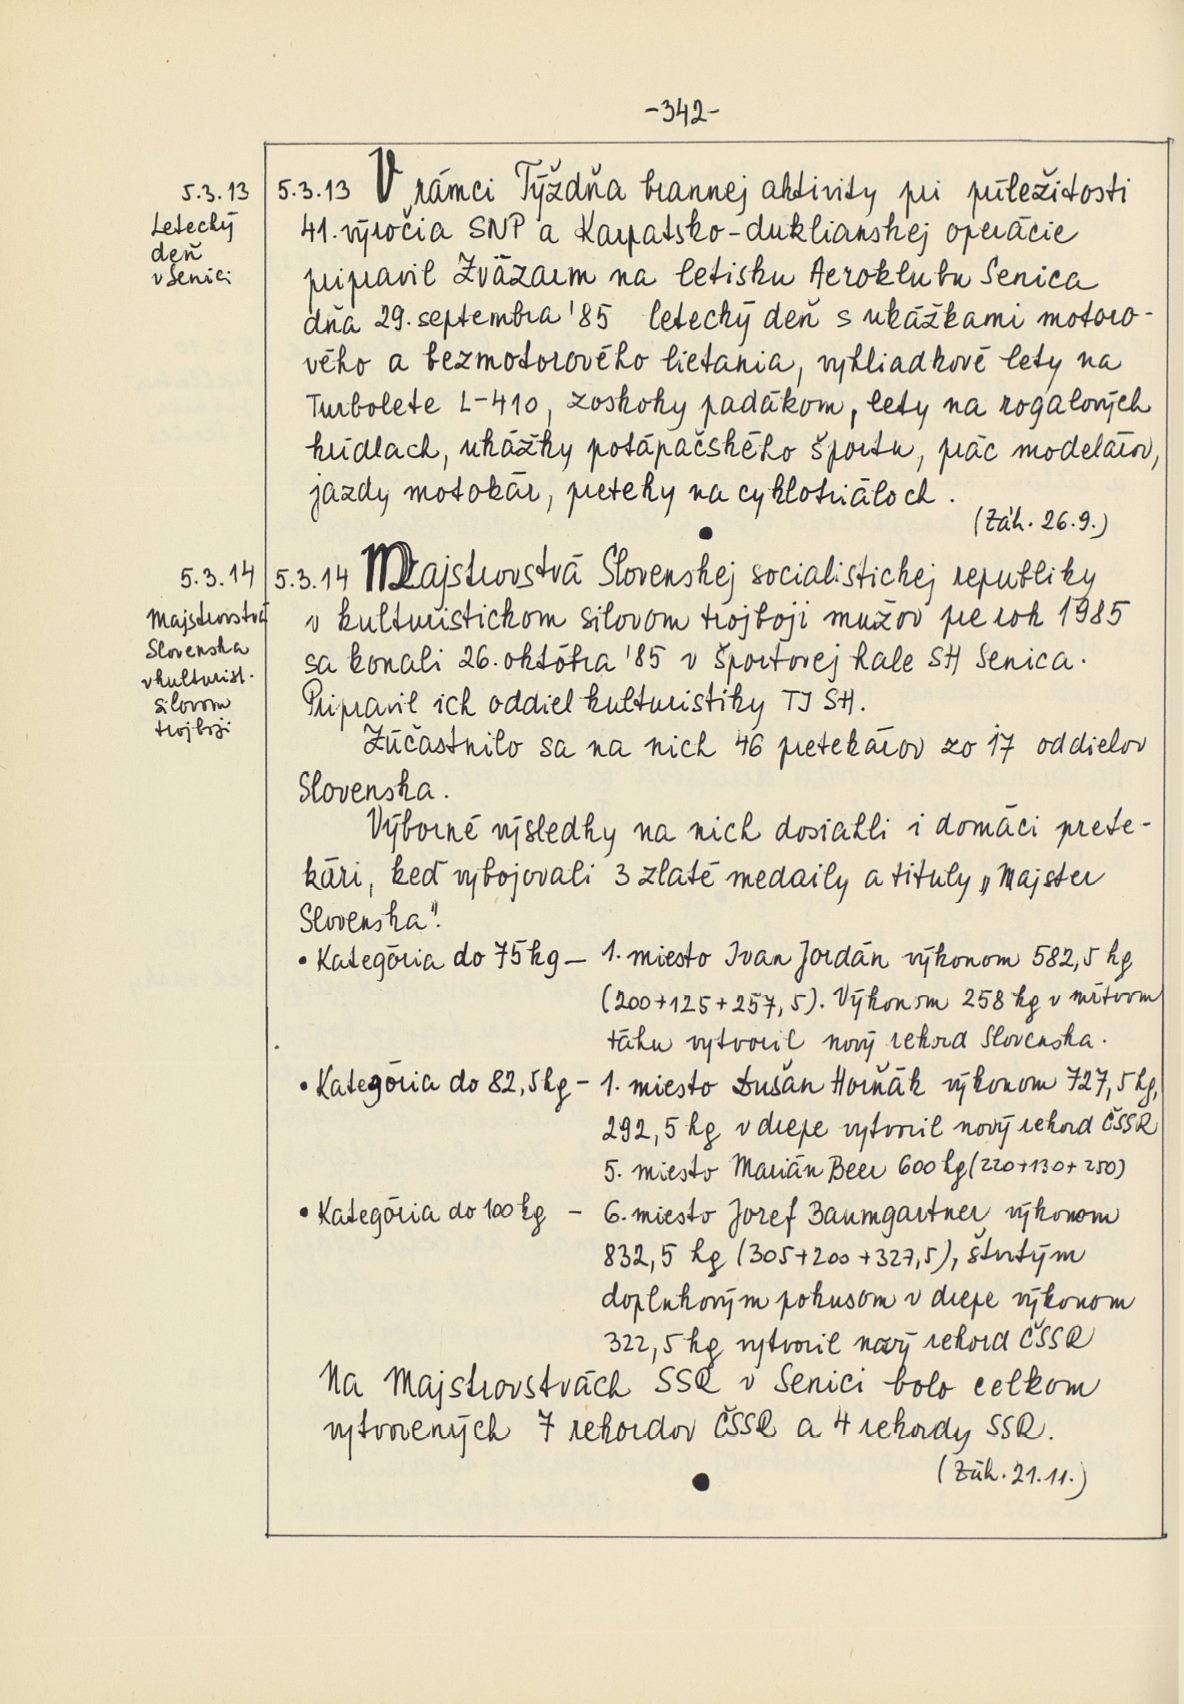 -342-
5.3.13
Letecký
deň
v Senici
5.3.13 V rámci Týždňa brannej aktivity pri príležitosti
41. výročia SNP a Karpatsko-duklianskej operácie
pripravil Zväzarm na letisku Aeroklubu Senica
dňa 29. septembra '85 letecký deň s ukážkami motoro-
vého a bezmotorového lietania, vyhliadkové lety na
Turbolete L-410, zoskoky padákom, lety na rogalových
krídlach, ukážky potápačského športu, prác modelárov,
jazdy motokár, preteky na cyklotriáloch.
(Záh. 26.9.)
5.3.14
Majstrovstvá
Slovenska
v kulturist.
silovom
trojboji
5.3.14 Majstrovstvá Slovenskej socialistickej republiky
v kulturistickom silovom trojboji mužov pre rok 1985
sa konali 26. októbra '85 v športovej hale SH Senica.
Pripravil ich oddiel kulturistiky TJ SH.
Zúčastnilo sa na nich 46 pretekárov zo 17 oddielov
Slovenska.
Výborné výsledky na nich dosiahli i domáci prete-
kári, keď vybojovali 3 zlaté medaily a tituly „Majster
Slovenska".
• Kategória do 75 kg – 1. miesto Ivan Jordán výkonom 582,5 kg
(200+125+257,5). Výkonom 258 kg v mŕtvom
ťahu vytvoril nový rekord Slovenska.
• Kategória do 82,5 kg – 1. miesto Dušan Horňák výkonom 727,5 kg,
292,5 kg v drepe vytvoril nový rekord ČSSR
5. miesto Marián Beer 600 kg (220+130+250)
• Kategória do 100 kg – 6. miesto Jozef Baumgartner výkonom
832,5 kg (305+200+327,5), štvrtým
doplnkovým pokusom v drepe výkonom
322,5 kg vytvoril nový rekord ČSSR
Na Majstrovstvách SSR v Senici bolo celkom
vytvorených 7 rekordov ČSSR a 4 rekordy SSR.
(Záh. 21.11.)